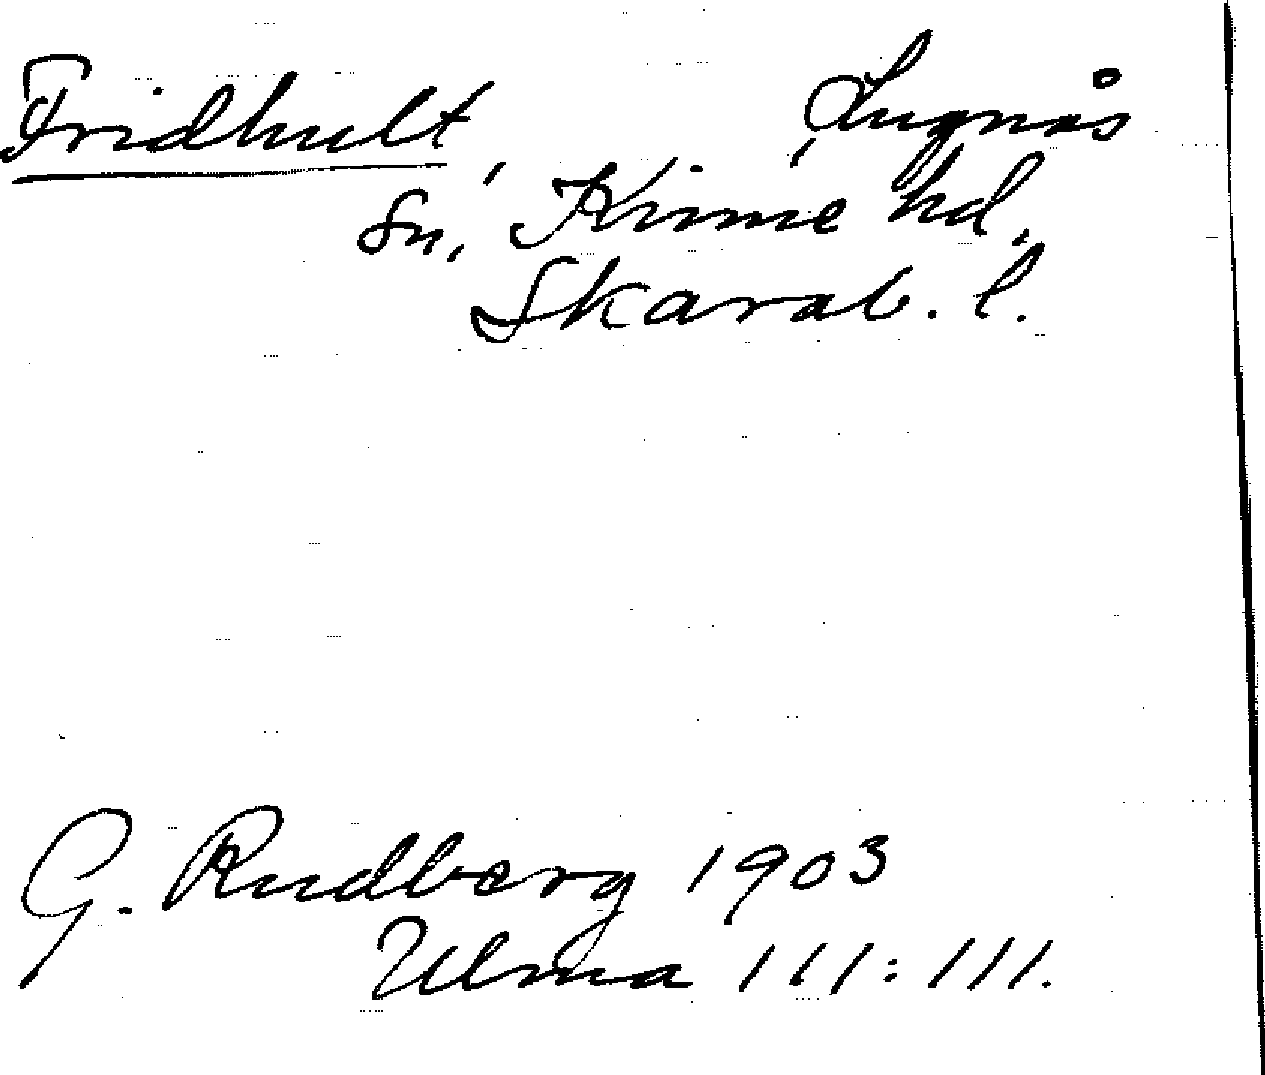 Fridhult, Lugnås
sn, Kinne hd,
Skarab. l.
G. Rudberg 1903
Ulma 111:111.